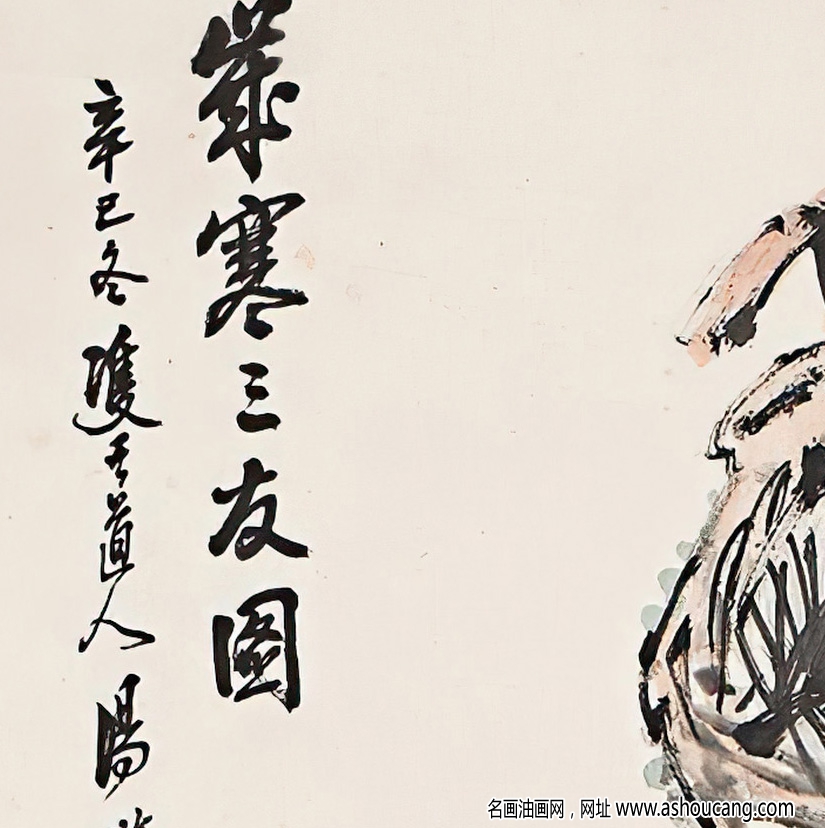 歲寒三友圖
辛巳冬雙吾道人陽
名画油画网，网址 www.ashoucang.com